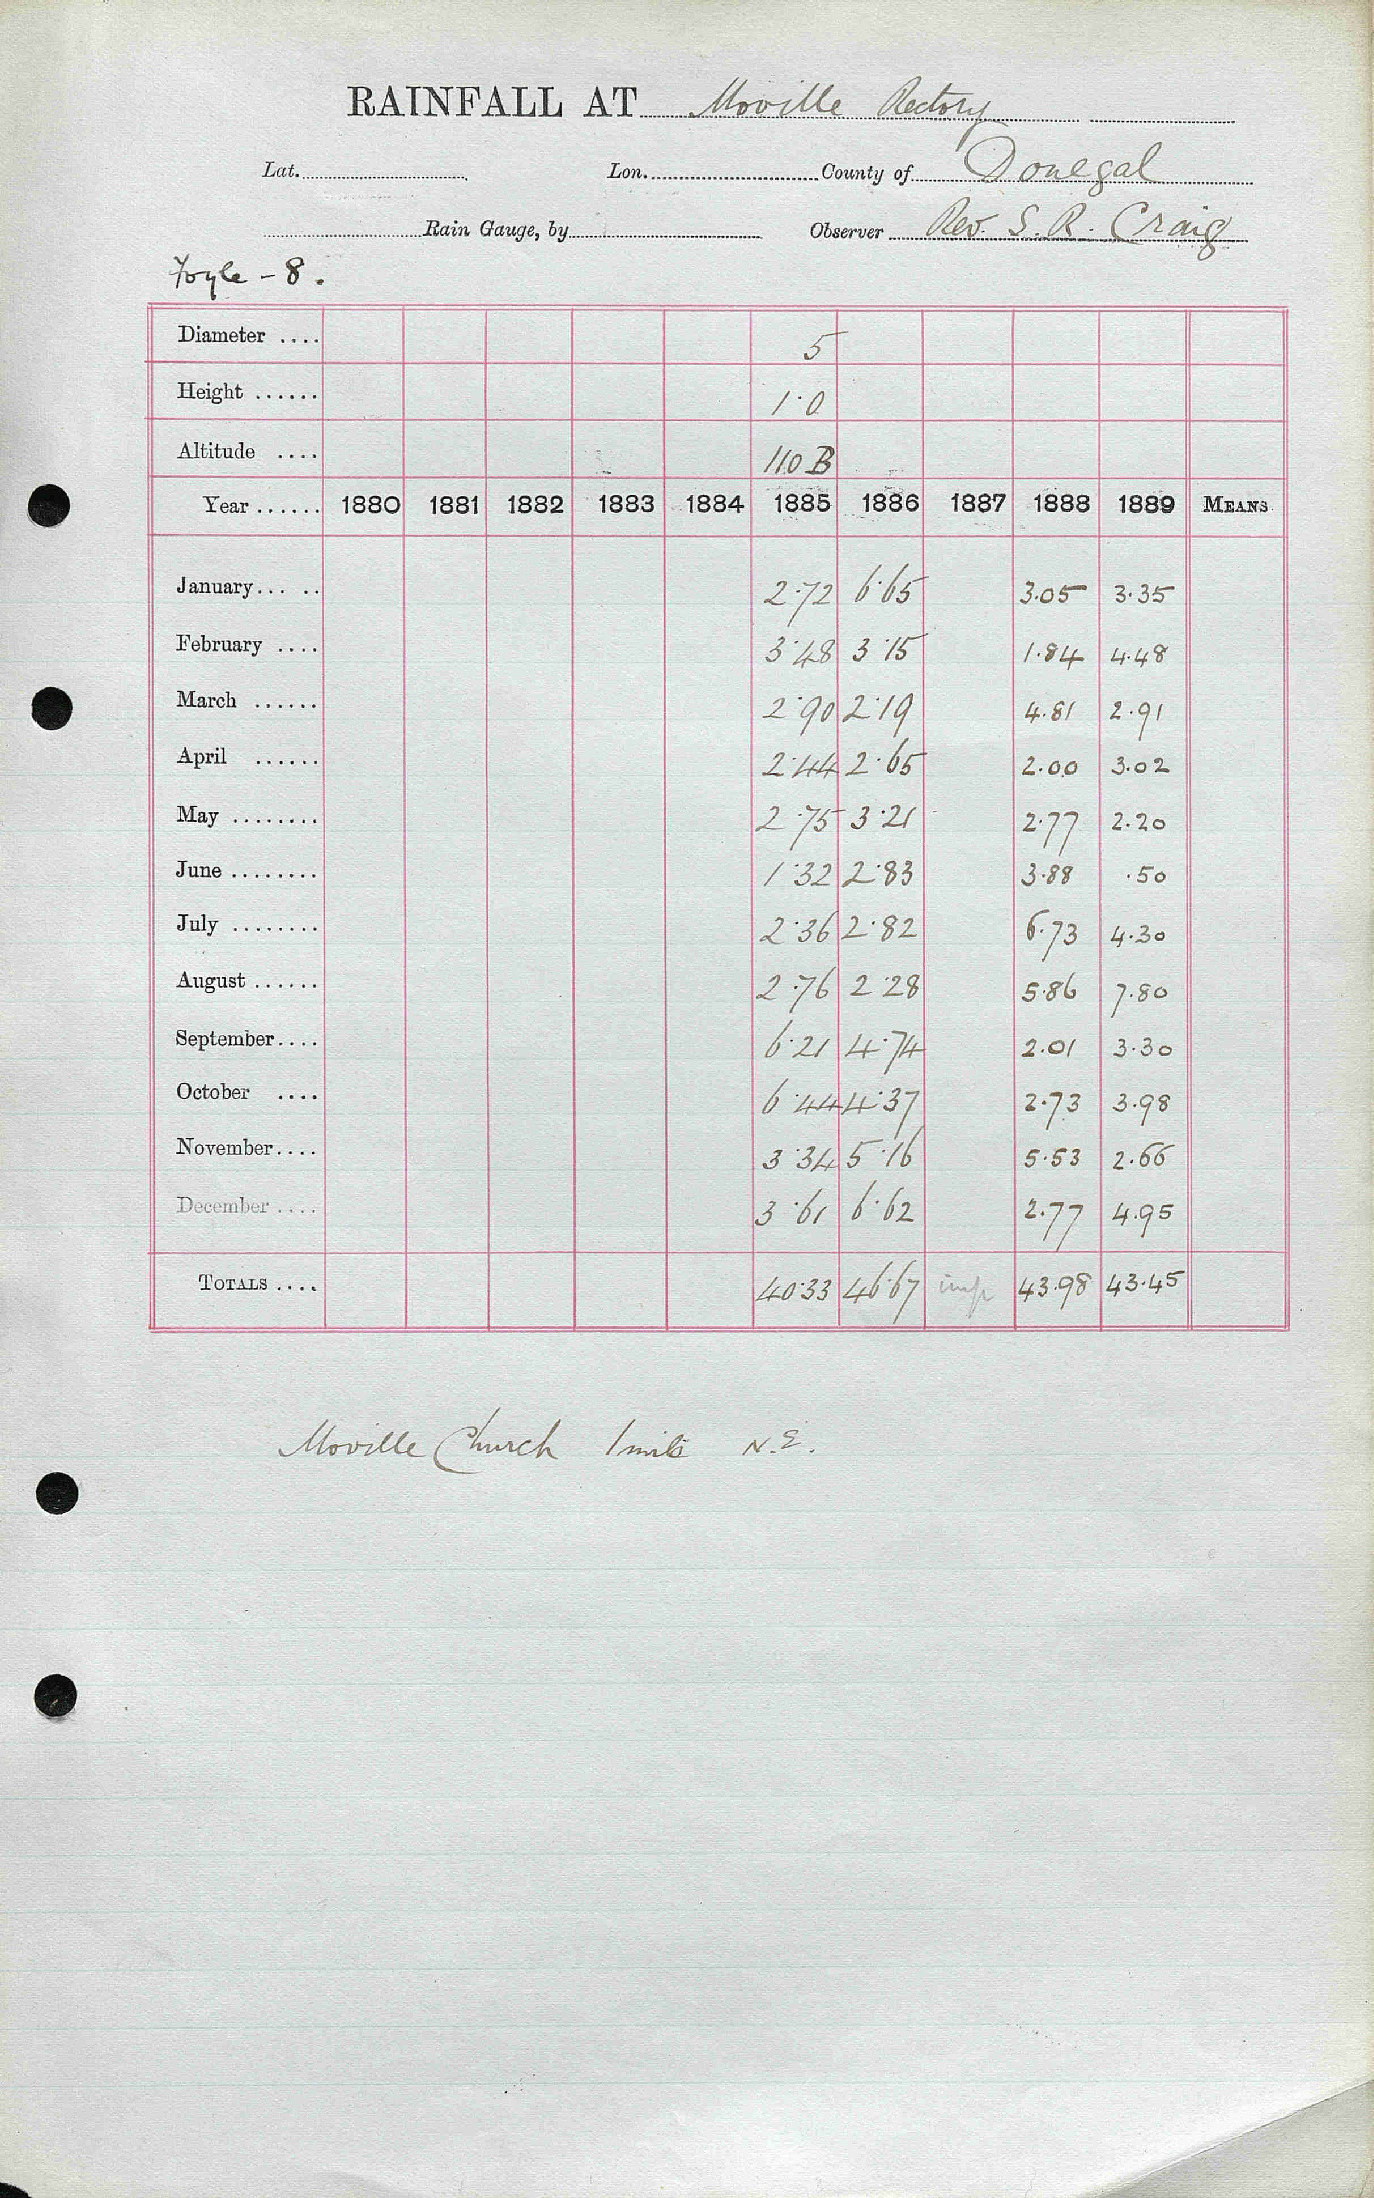 RAINFALL AT Moville Rectory
Lat. Lon. County of Donegal
Rain Gauge, by Observer Rev. S. R. Craig
Foyle - 8.
Diameter .... 5
Height ...... 1·0
Altitude .... 110 B
Year ...... 1880 1881 1882 1883 1884 1885 1886 1887 1888 1889 MEANS
January... .. 2·72 6·65 3.05 3.35
February .... 3·48 3·15 1.84 4.48
March ...... 2·90 2·19 4.81 2.91
April ...... 2·44 2·65 2.00 3.02
May ........ 2·75 3·21 2.77 2.20
June ........ 1·32 2·83 3.88 .50
July ........ 2·36 2·82 6.73 4.30
August ...... 2·76 2·28 5.86 7.80
September.... 6·21 4·74 2.01 3.30
October .... 6·44 4·37 2.73 3.98
November.... 3·34 5·16 5.53 2.66
December .... 3·61 6·62 2.77 4.95
TOTALS .... 40·33 46·67 imp 43.98 43.45
Moville Church 1 mile N.E.